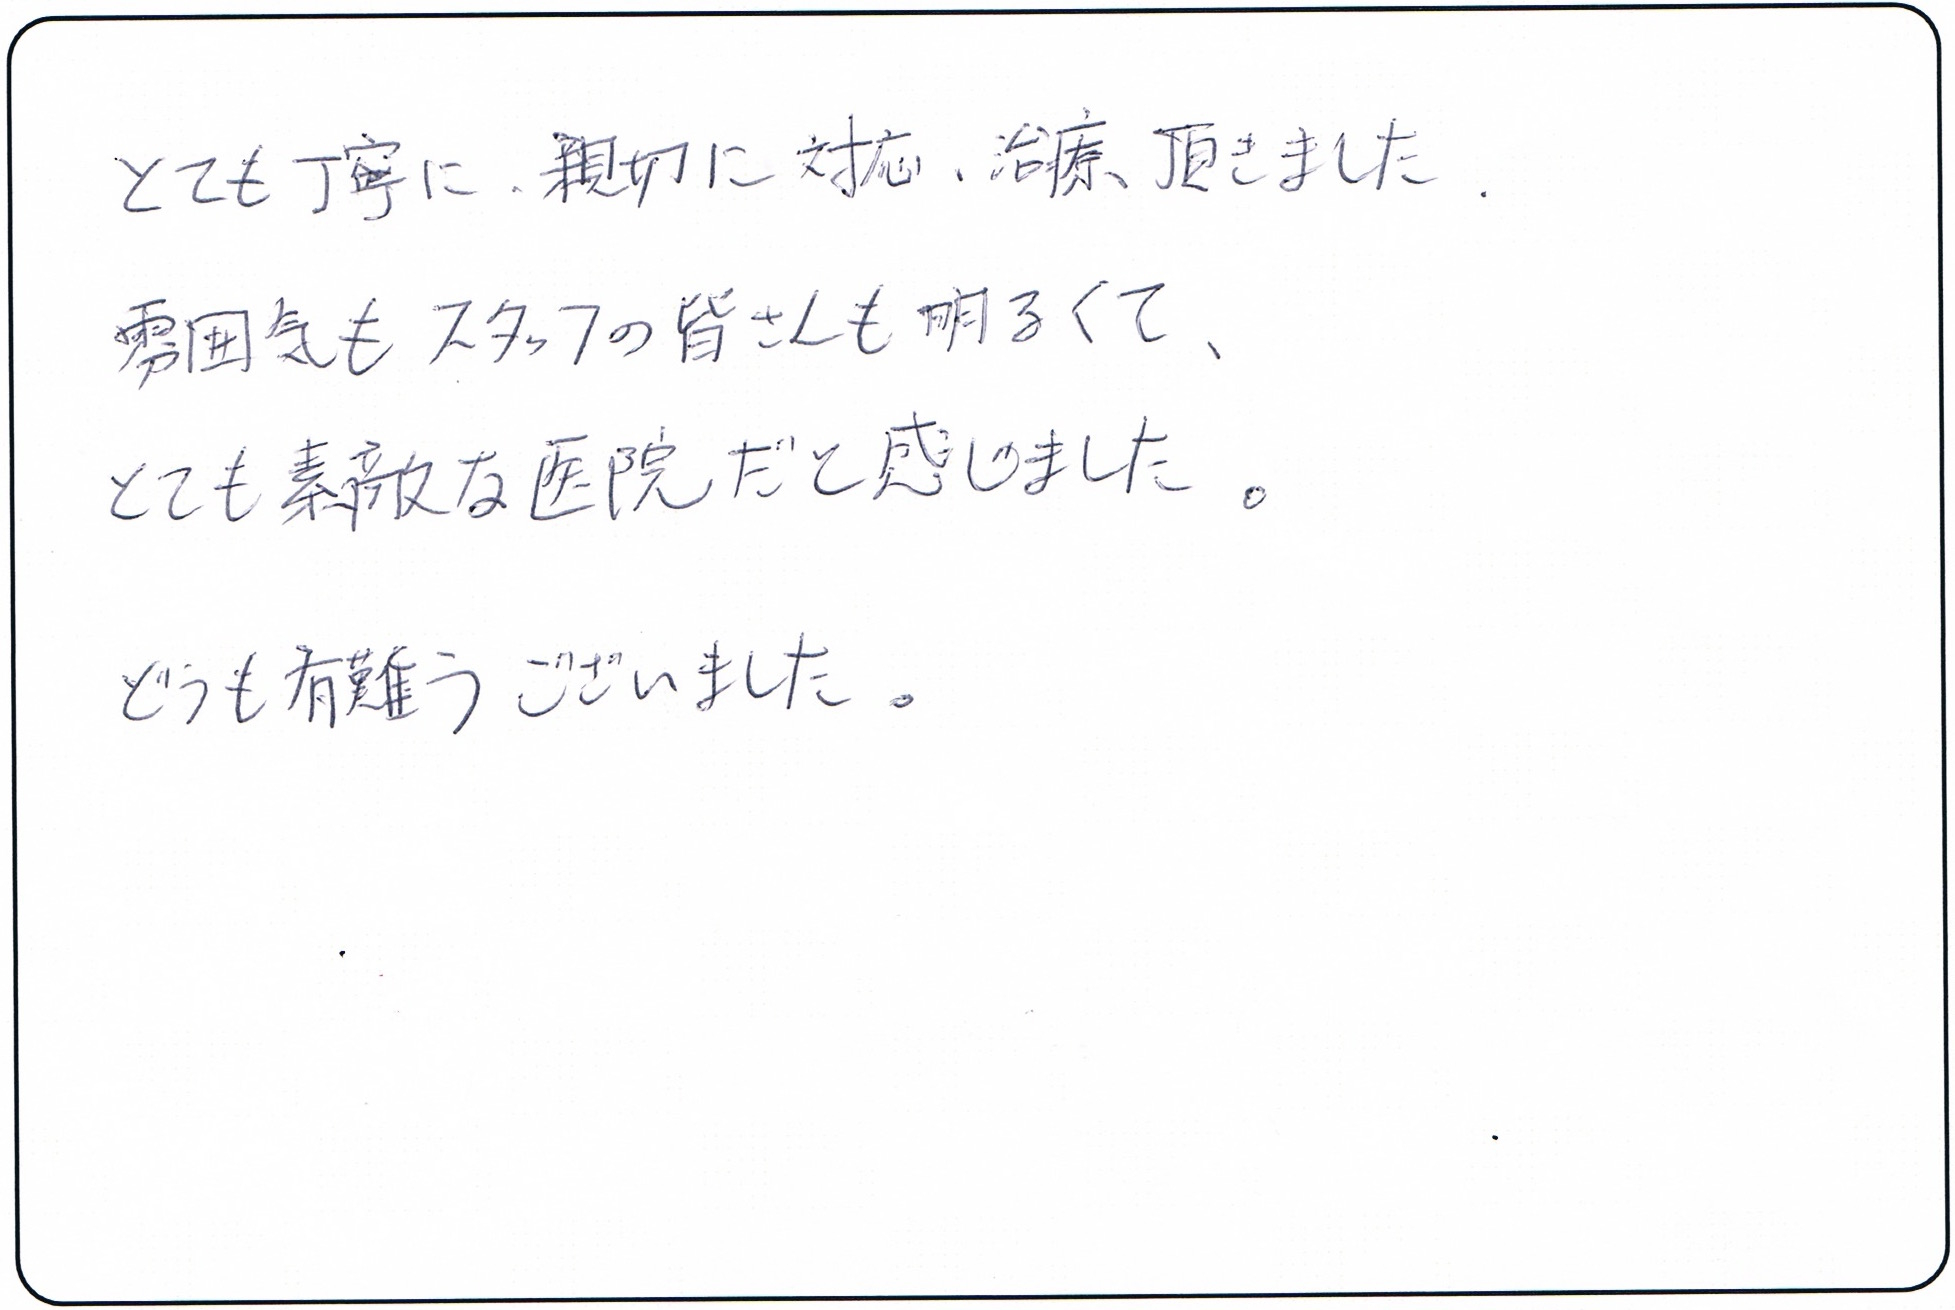 とても丁寧に、親切に対応、治療、頂きました.
雰囲気もスタッフの皆さんも明るくて、
とても素敵な医院だと感じました。
どうも有難うございました。